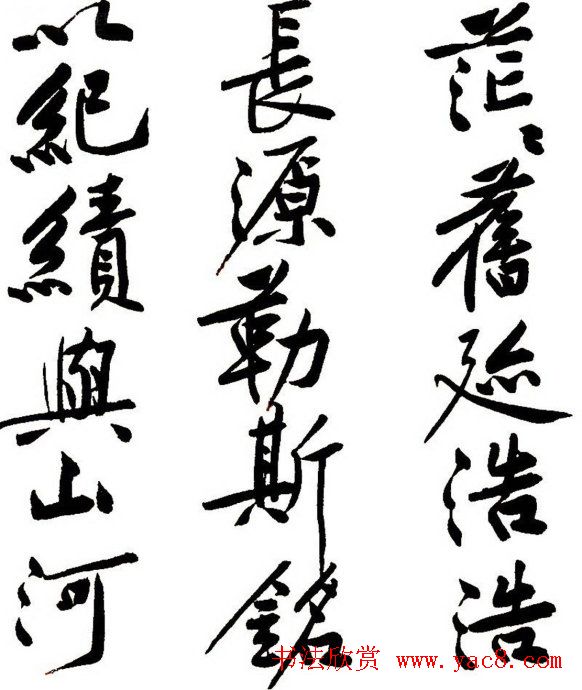 茫々舊迹浩浩
長源勒斯銘
以紀績與山河
书法欣赏 www.yac8.com